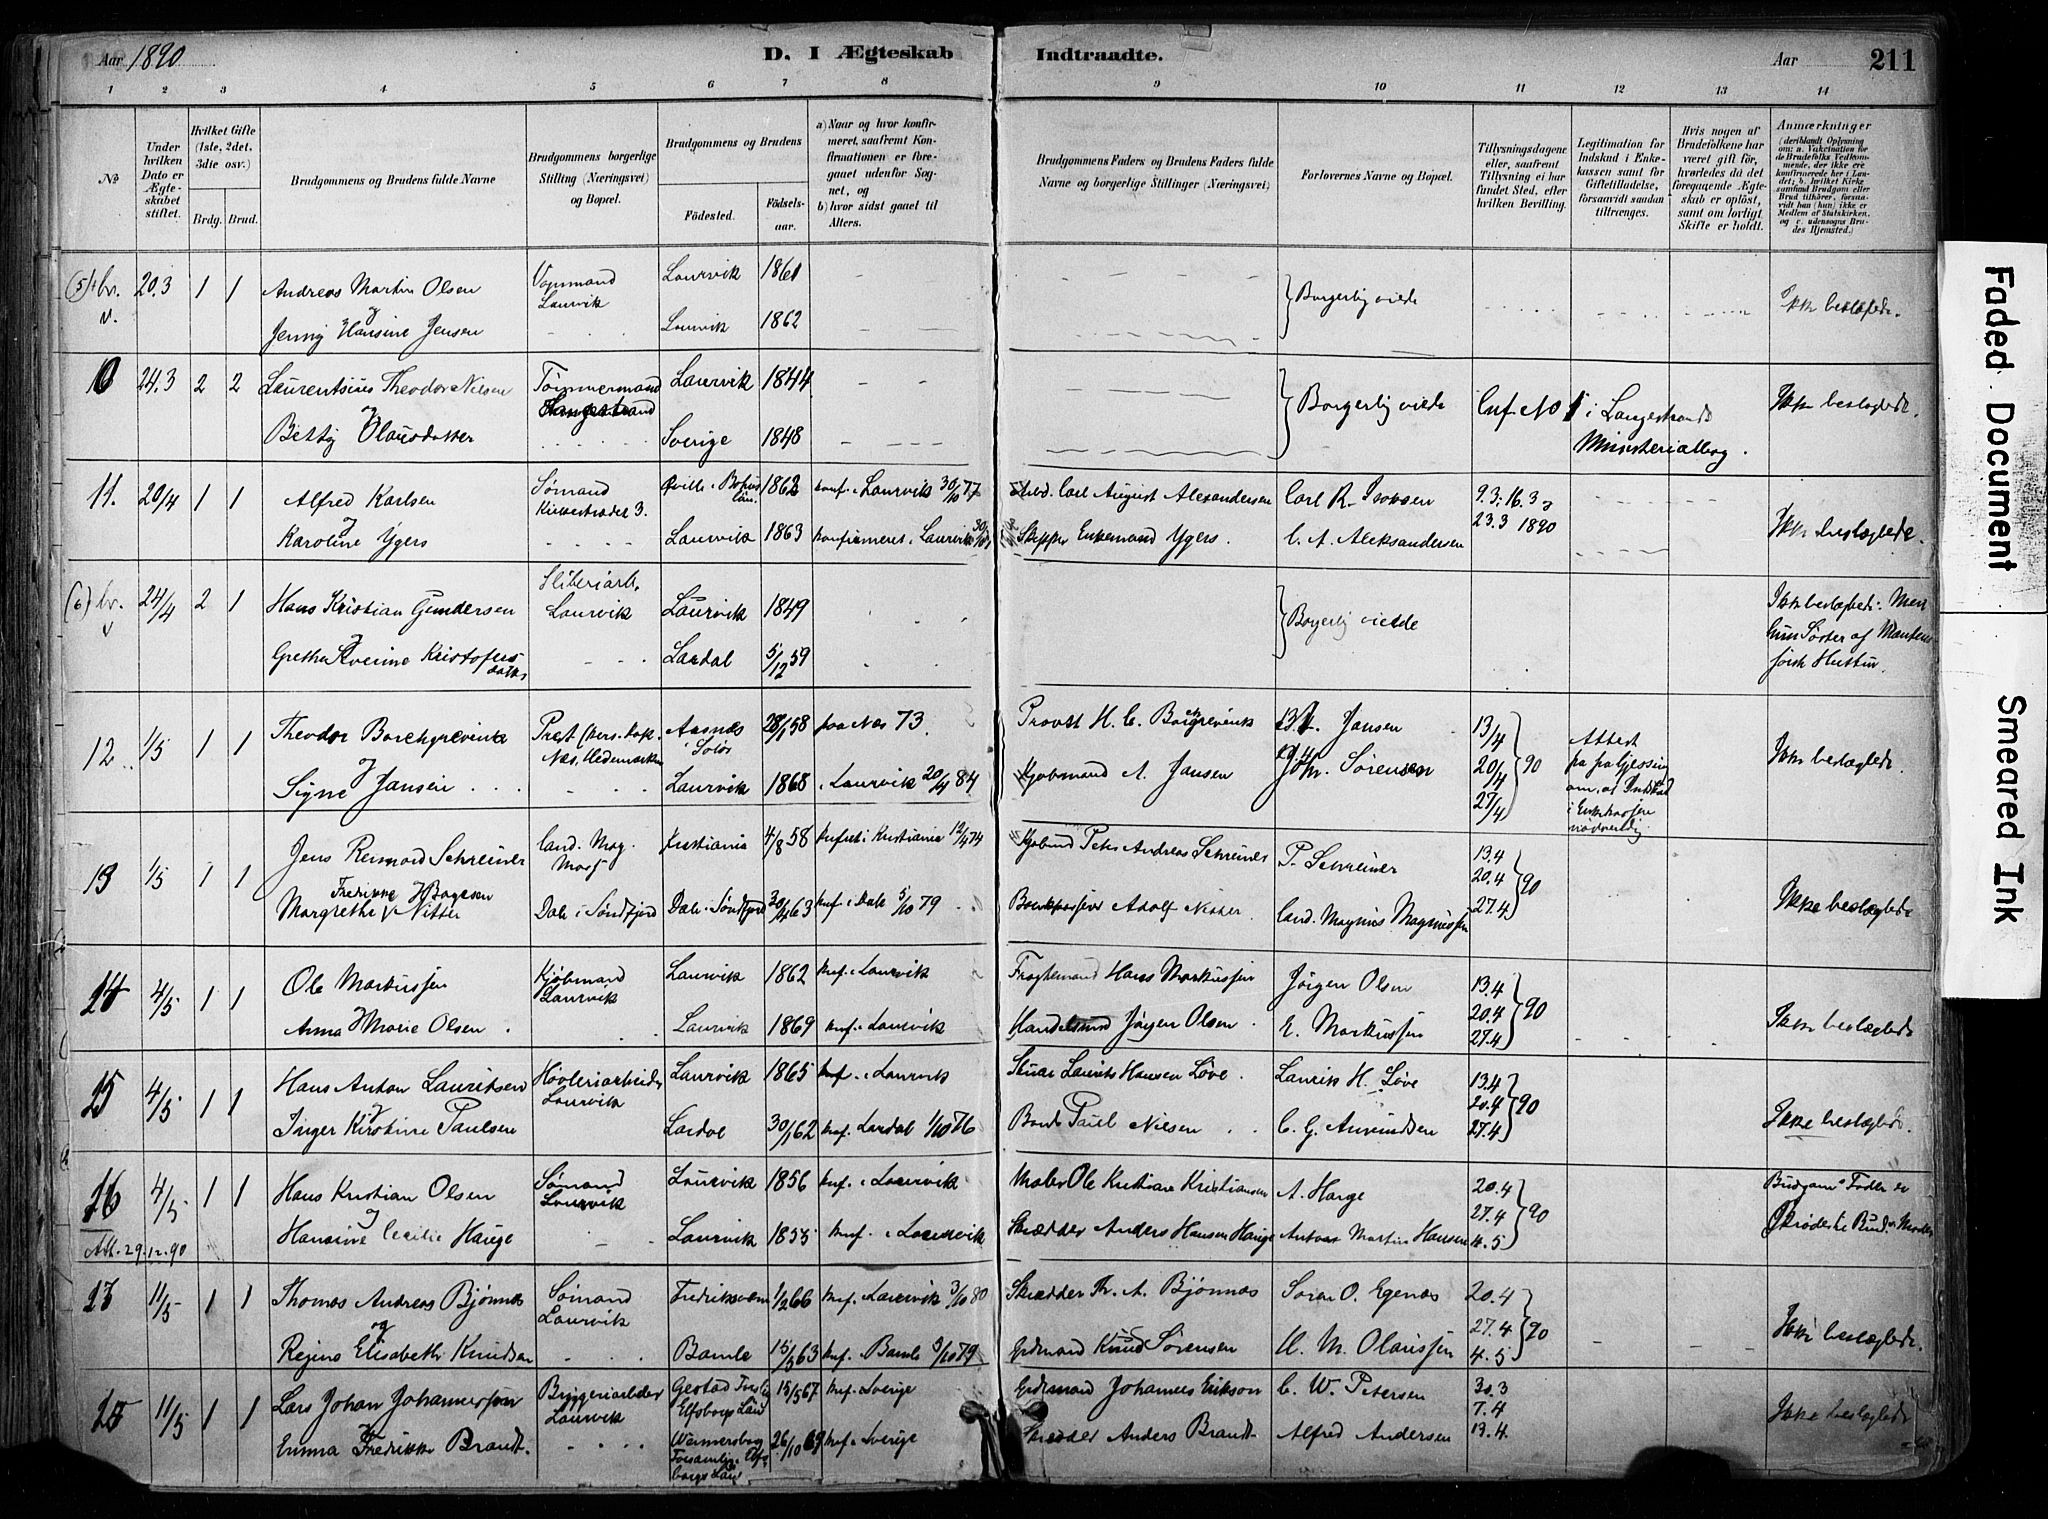 Aar 1890
D. I Ægteskab
Indtraadte.
Aar
211
1 2 3 4 5 6 7 8 9 10 11 12 13 14
No
Under hvilken Dato er Ægteskabet stiftet.
Hvilket Gifte (1ste, 2det, 3die osv.)
Brdg. Brud.
Brudgommens og Brudens fulde Navne
Brudgommens borgerlige Stilling (Næringsvei) og Bopæl.
Brudgommens og Brudens
Födested.
Födselsaar.
a) Naar og hvor konfirmeret, saafremt Konfirmationen er foregaaet udenfor Sognet, og
b) hvor sidst gaaet til Alters.
Brudgommens Faders og Brudens Faders fulde Navne og borgerlige Stillinger (Næringsvei)
Forlovernes Navne og Bopæl.
Tillysningsdagene eller, saafremt Tillysning ei har fundet Sted, efter hvilken Bevilling.
Legitimation for Indskud i Enkekassen samt for Giftetilladelse, forsaavidt saadan tiltrænges.
Hvis nogen af Brudefolkene har været gift før, hvorledes da det foregaaende Ægteskab er oplöst, samt om lovligt Skifte er holdt.
Anmærkninger
(deriblandt Oplysning om: a. Vaccination for de Brudefolks Vedkommende, der ikke ere konfirmerede her i Landet; b. hvilket Kirkesamfund Brudgom eller Brud tilhörer, forsaavidt han (hun) ikke er Medlem af Statskirken, og c. udensogns Brudes Hjemsted.)
(5) br. v. 20.3 1 1 Andreas Martin Olsen Laurvik Laurvik 1861 Borgerlig viede
og
Jenny Hansine Jensen Laurvik 1862
10 24.3 2 2 Laurentsius Theodor Nilsen Tømmermand Laurvik 1844 Borgerlig viede i Langestrands Ikke beslægtede.
og Langestrand
Betty Olausdatter Sverige 1848 Ministerialbog.
11. 20/4 1 1 Alfred Karlsen Sømand 1862 konf. i Laurvik 30/10 77 Carl August Alexandersen 9.3. 16.3 og
og Kirkestrædet 3.
Karoline Ygers Laurvik 1863 konfirmeret i Laurvik Skipper Enkemand Ygers. C. A. Aleksandersen 23.3 1890 Ikke beslægtede.
(6) br. v 24/4 2 1 Hans Kristian Gundersen Laurvik Laurvik 1849 Borgerlig viede Ikke beslægtede. Men
Grethe Severine Kristofersdatter Lardal 5/12 59 Søster af
12 1/5 1 1 Theodor Borchgrevink Prest (pers. kap. Aasnæs i Solør 28/1 58 paa Næs 73. Provst H. C. Borchgrevink Jansen 13/4
og Næs, Hedemarken
Signe Jansen Laurvik 1868 i Laurvik 20/4 84 Kjøbmand A. Jansen Joh. Sørensen 20/4 90 27/4 Ikke beslægtede.
Attest fra
om, at Indskud
i Enkekassen
nødvendig
13 1/5 1 1 Jens Reimard Schreiner Cand. Mag. Kristiania 4/8 58 konf. i Kristiania 12/4 74 Kjøbmd Peter Andreas Schreiner P. Schreiner 13.4
Moss
Fredrikke Bøgesen 20.4 90
Margrethe Nitter Dale i Søndfjord Dale i Søndfjord 63 konf. i Dale 5/10 79 Adolf Nitter. Cand. Magnus Magnussen 27.4 Ikke beslægtede
14 4/5 1 1 Ole Markussen Kjøbmand Laurvik 1862 konf. i Laurvik Fragtemand Hans Markussen Jörgen Olsen 13.4
og Laurvik 20.4 90
Anna Marie Olsen Laurvik 1869 konf. i Laurvik Handelsmd Jörgen Olsen E. Markussen 27.4 Ikke beslægtede
15 4/5 1 1 Hans Anton Lauritsen Høvleriarbeider Laurvik 1865 konf. i Laurvik Lauritz Hansen Løve. Laurits H. Løve 13.4
og Laurvik 20.4 90
Inger Kirstine Paulsen Lardal 30/1 62 konf. Lardal 1/10 76 Bonde Paul Nilsen C. G. Anundsen 27.4 Ikke beslægtede.
16 4/5 1 1 Hans Kristian Olsen Sømand Laurvik 1856 konf. i Laurvik Maler Ole Kristian Kristiansen A. Hauge 20.4 Brudgoms Fader er
og Laurvik 27.4 90
Hansine Cecilie Hauge Laurvik 1855 konf. i Laurvik Skrædder Anders Hansen Hauge Anton Martin Hansen 4.5
Att. 29.12.90
17 11/5 1 1 Thomas Andreas Bjønnes Sømand Fredriksværn 1/2 66 konf. Laurvik 3/10 80 Skrædder Th. A. Bjønnes Soren O. Egenæs 20.4
og Laurvik 27.4 90
Regine Elisabeth Knudsen Bamle 15/5 63 konf. Bamle 9/10 79 Grdmand Knud Sørensen H. M. Olaussen 4.5 Ikke beslægtede.
11/5 1 1 Lars Johan Johannesson Bryggeriarbeider Gestad 15/5 67 konf. Sverige Grdmand Johannes Erikson C. W. Petersen 30.3
og Laurvik Elfsborgs Län 7.4
Emma Fredrikke Brandt. 26/10 69 konf. i Sverige Skrædder Anders Brandt Alfred Andersen 13.4 Ikke beslægtede
Faded Document
Smeared Ink